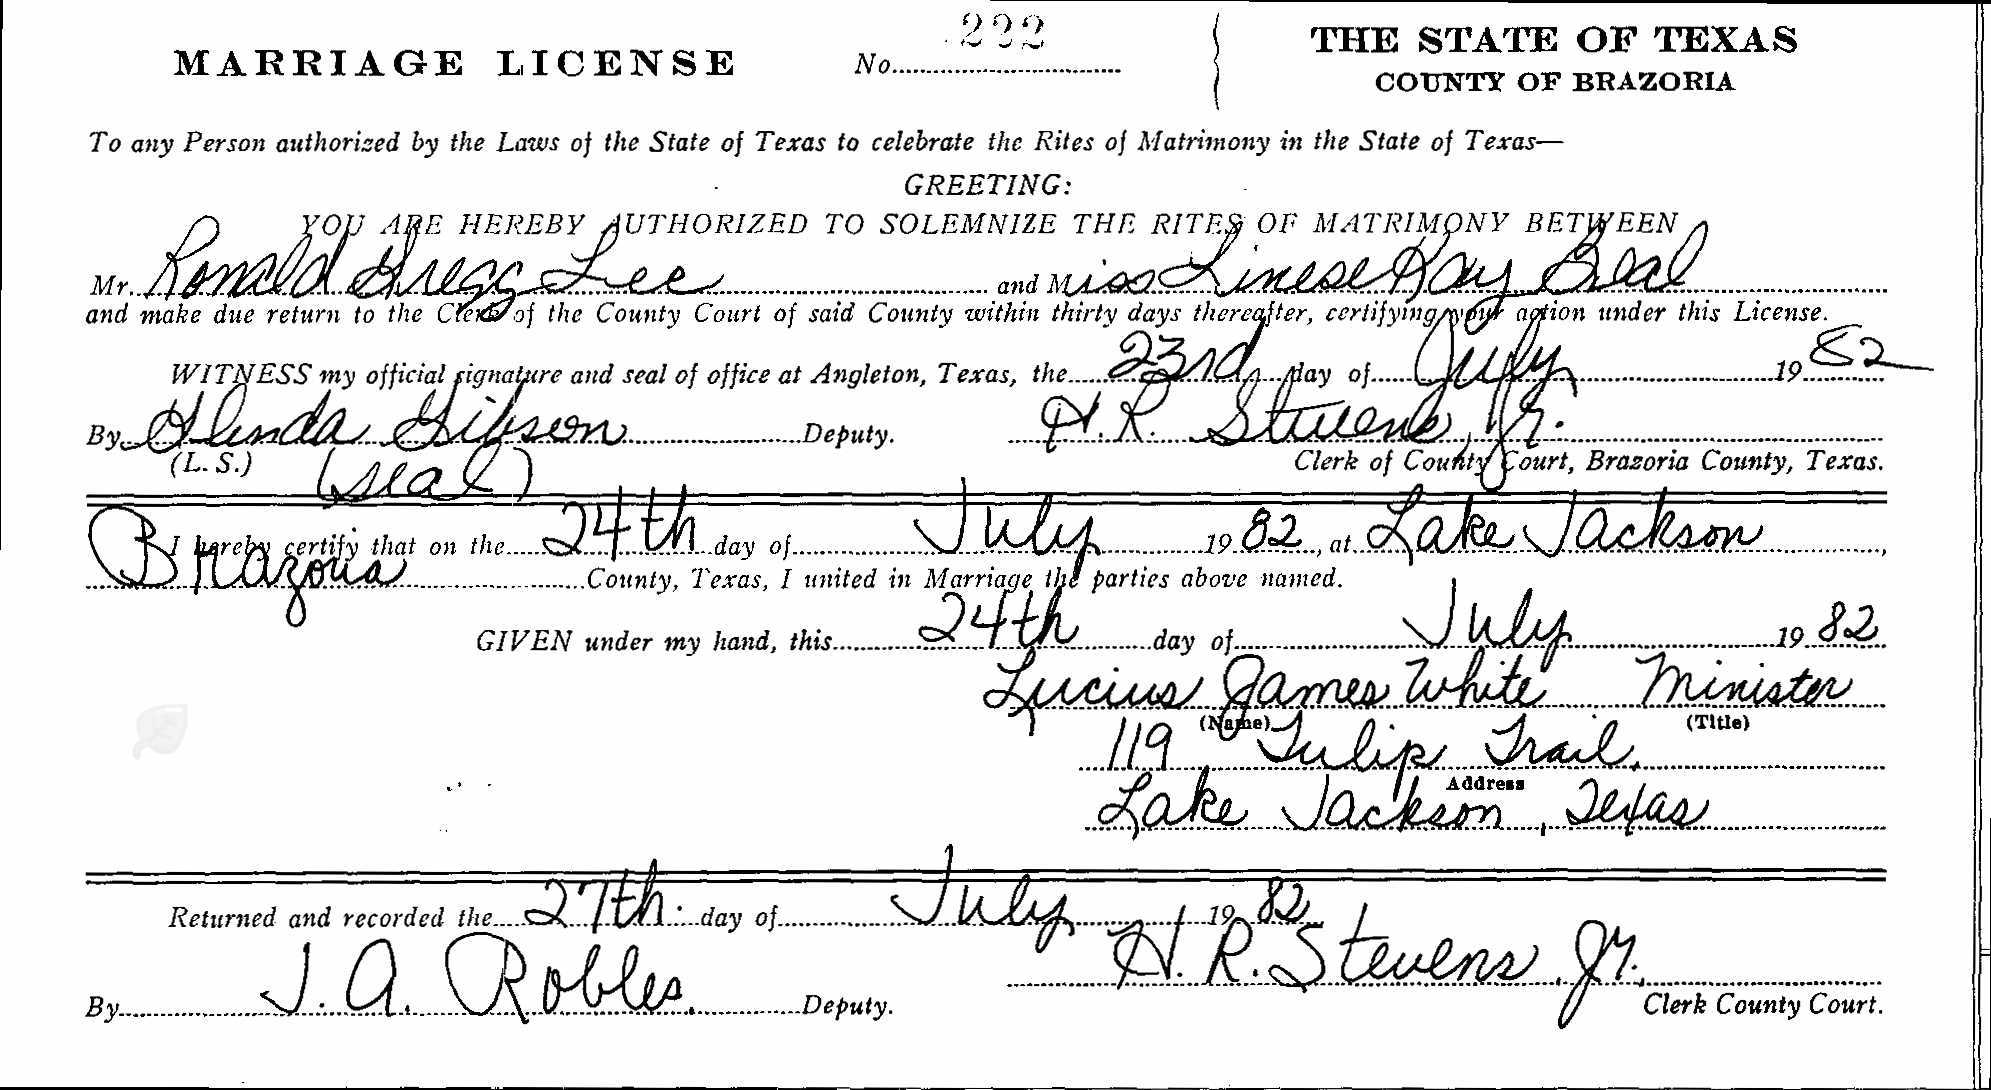 MARRIAGE LICENSE No. 222 THE STATE OF TEXAS
COUNTY OF BRAZORIA
To any Person authorized by the Laws of the State of Texas to celebrate the Rites of Matrimony in the State of Texas—
GREETING:
YOU ARE HEREBY AUTHORIZED TO SOLEMNIZE THE RITES OF MATRIMONY BETWEEN
Mr. Ronald Gregg Lee and Miss Linese Kay Beal
and make due return to the Clerk of the County Court of said County within thirty days thereafter, certifying your action under this License.
WITNESS my official signature and seal of office at Angleton, Texas, the 23rd day of July 1982
By Glenda Gibson Deputy. H. R. Stevens, Jr.
(L. S.) (seal) Clerk of County Court, Brazoria County, Texas.
I hereby certify that on the 24th day of July 1982, at Lake Jackson,
Brazoria County, Texas, I united in Marriage the parties above named.
GIVEN under my hand, this 24th day of July 1982.
Lucius James White Minister
(Name) (Title)
119 Tulip Trail
Address
Lake Jackson, Texas
Returned and recorded the 27th day of July 1982
H. R. Stevens, Jr.
By J. A. Robles Deputy. Clerk County Court.